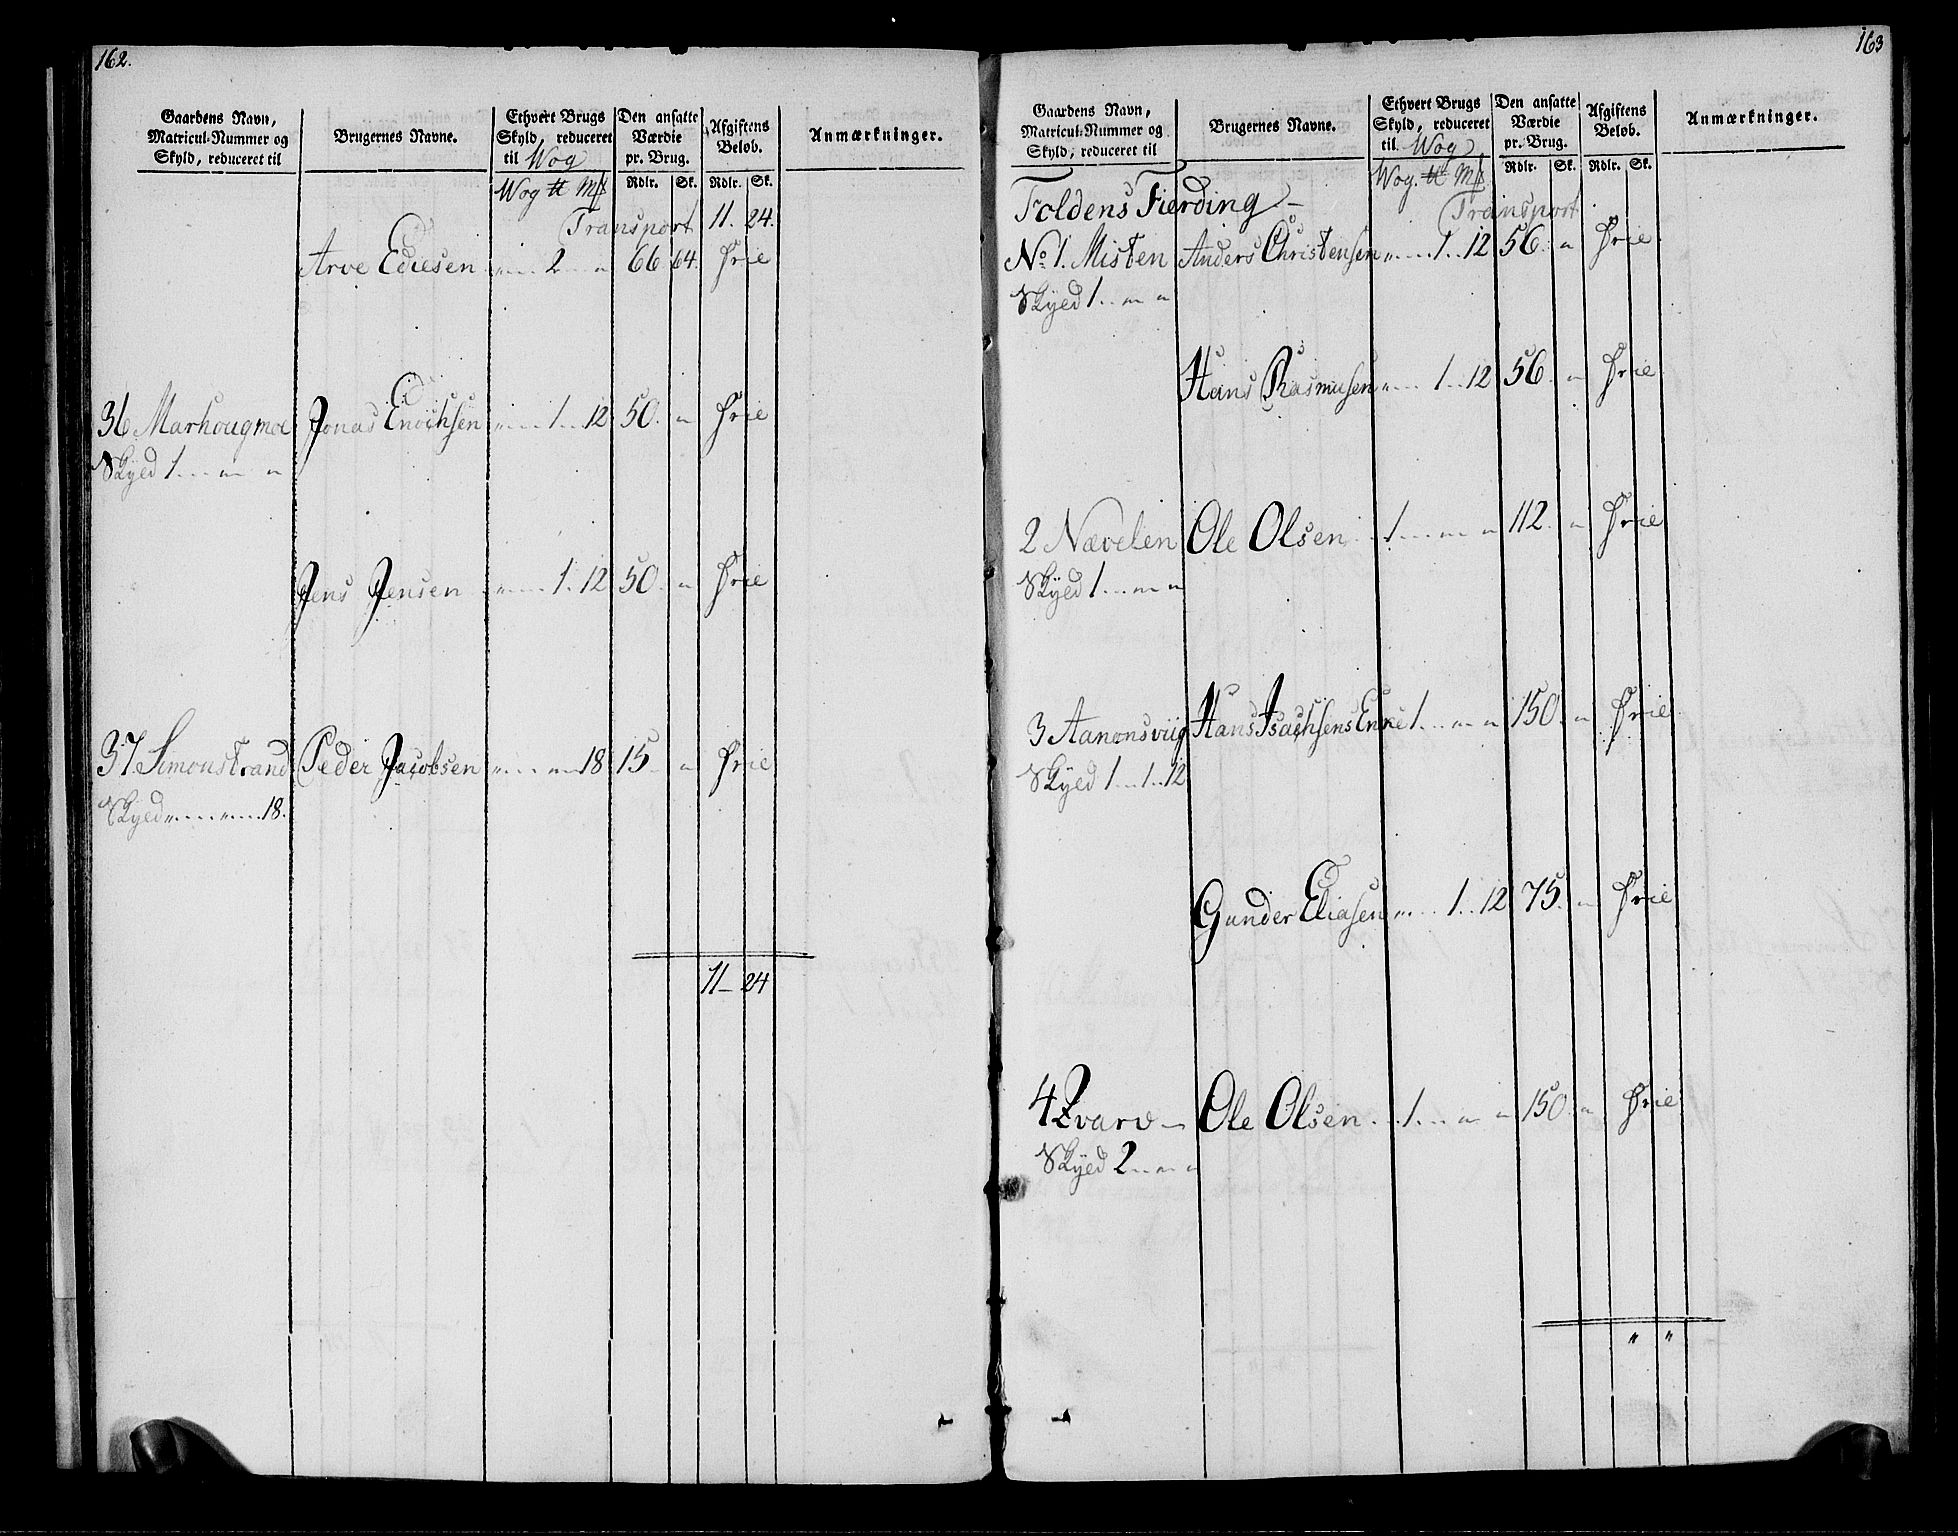 162.
Gaardens Navn, Matricul-Nummer og Skyld, reduceret til
Brugernes Navne.
Ethvert Brugs Skyld, reduceret til Wog
Den ansatte Værdie pr. Brug.
Afgiftens Beløb.
Anmærkninger.
Wog ℔ Mk Rdlr. Sk. Rdlr. Sk.
Transport 11. 24.
Arve Ediesen " 2 " 66 64. Frie
36 Marhougmoe Jonas Enochsen " 1 12 50. " Frie
Skyld 1 " "
Jens Jensen " 1. 12 50. " Frie
37. Simonstrand Peder Jacobsen " " 18 15 " Frie
Skyld " " 18.
11 — 24
163
Gaardens Navn, Matricul-Nummer og Skyld, reduceret til
Brugernes Navne.
Ethvert Brugs Skyld, reduceret til Wog
Den ansatte Værdie pr. Brug.
Afgiftens Beløb.
Anmærkninger.
Wog. ℔ Mk Rdlr. Sk. Rdlr. Sk.
Foldens Fierding —
Transport
No. 1. Misten Anders Christensen " 1 12 56. " Frie
Skyld 1 " "
Hans Rasmusen " 1 12 56. " Frie
2 Nævelen Ole Olsen 1 " " 112. " Frie
Skyld 1 " "
3 Aanonsviig Hans Isachsens Enke 1 " " 150. " Frie
Skyld 1 1 12
Gunder Eliasen " 1 12 75. " Frie
4 Qvarv — Ole Olsen 1 " " 150 " Frie
Skyld 2 " "
" "